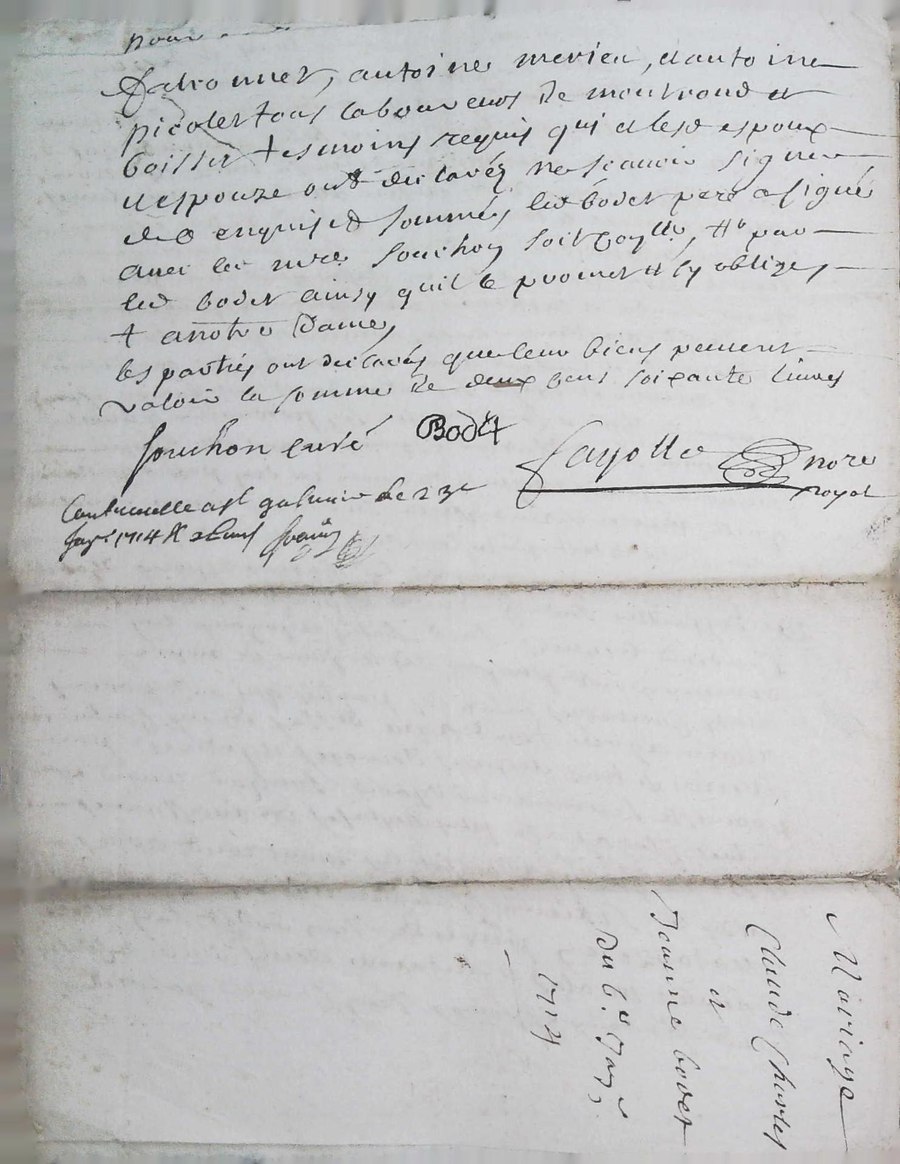 pour
antoine merieu, et antoine
picolet tous laboureurs de montrond et
boisset tesmoins requis qui et lesd espoux
et espouze ont declarés ne scavoir signer
de ce enquis et sommés, led bodet pere a signé
avec led mre souchon soit par
led bodet ainsy quil le promet et sy oblige,
+ a notre Dame,
les parties ont declarés que leur biens peuvent
valoir la somme de deux cens soixante livres
souchon curé
Bodet
fayolle nore
royal
controlle a st galmier le 23e
janr 1714 R
Mariage
Claude Charles
et
Jeanne bodet
Du 6e Janr
1714